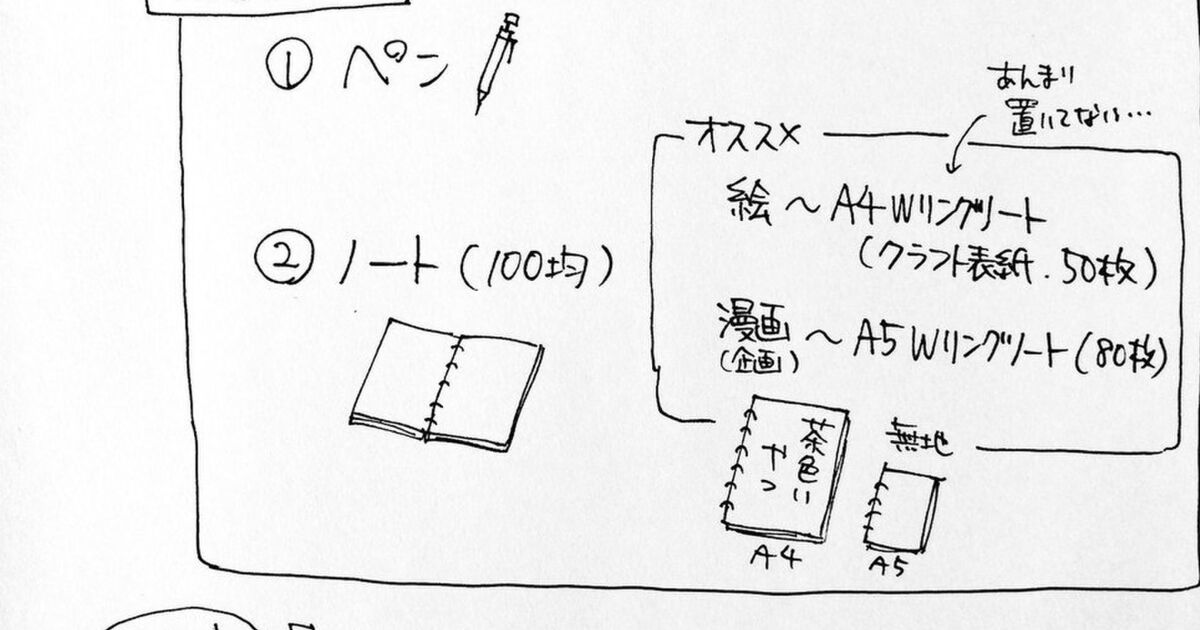 ① ペン
② ノート(100均)
あんまり
置いてない…
オススメ
絵〜A4Wリングノート
(クラフト表紙．50枚)
漫画〜A5Wリングノート(80枚)
(企画)
茶色い
やつ
A4
無地
A5